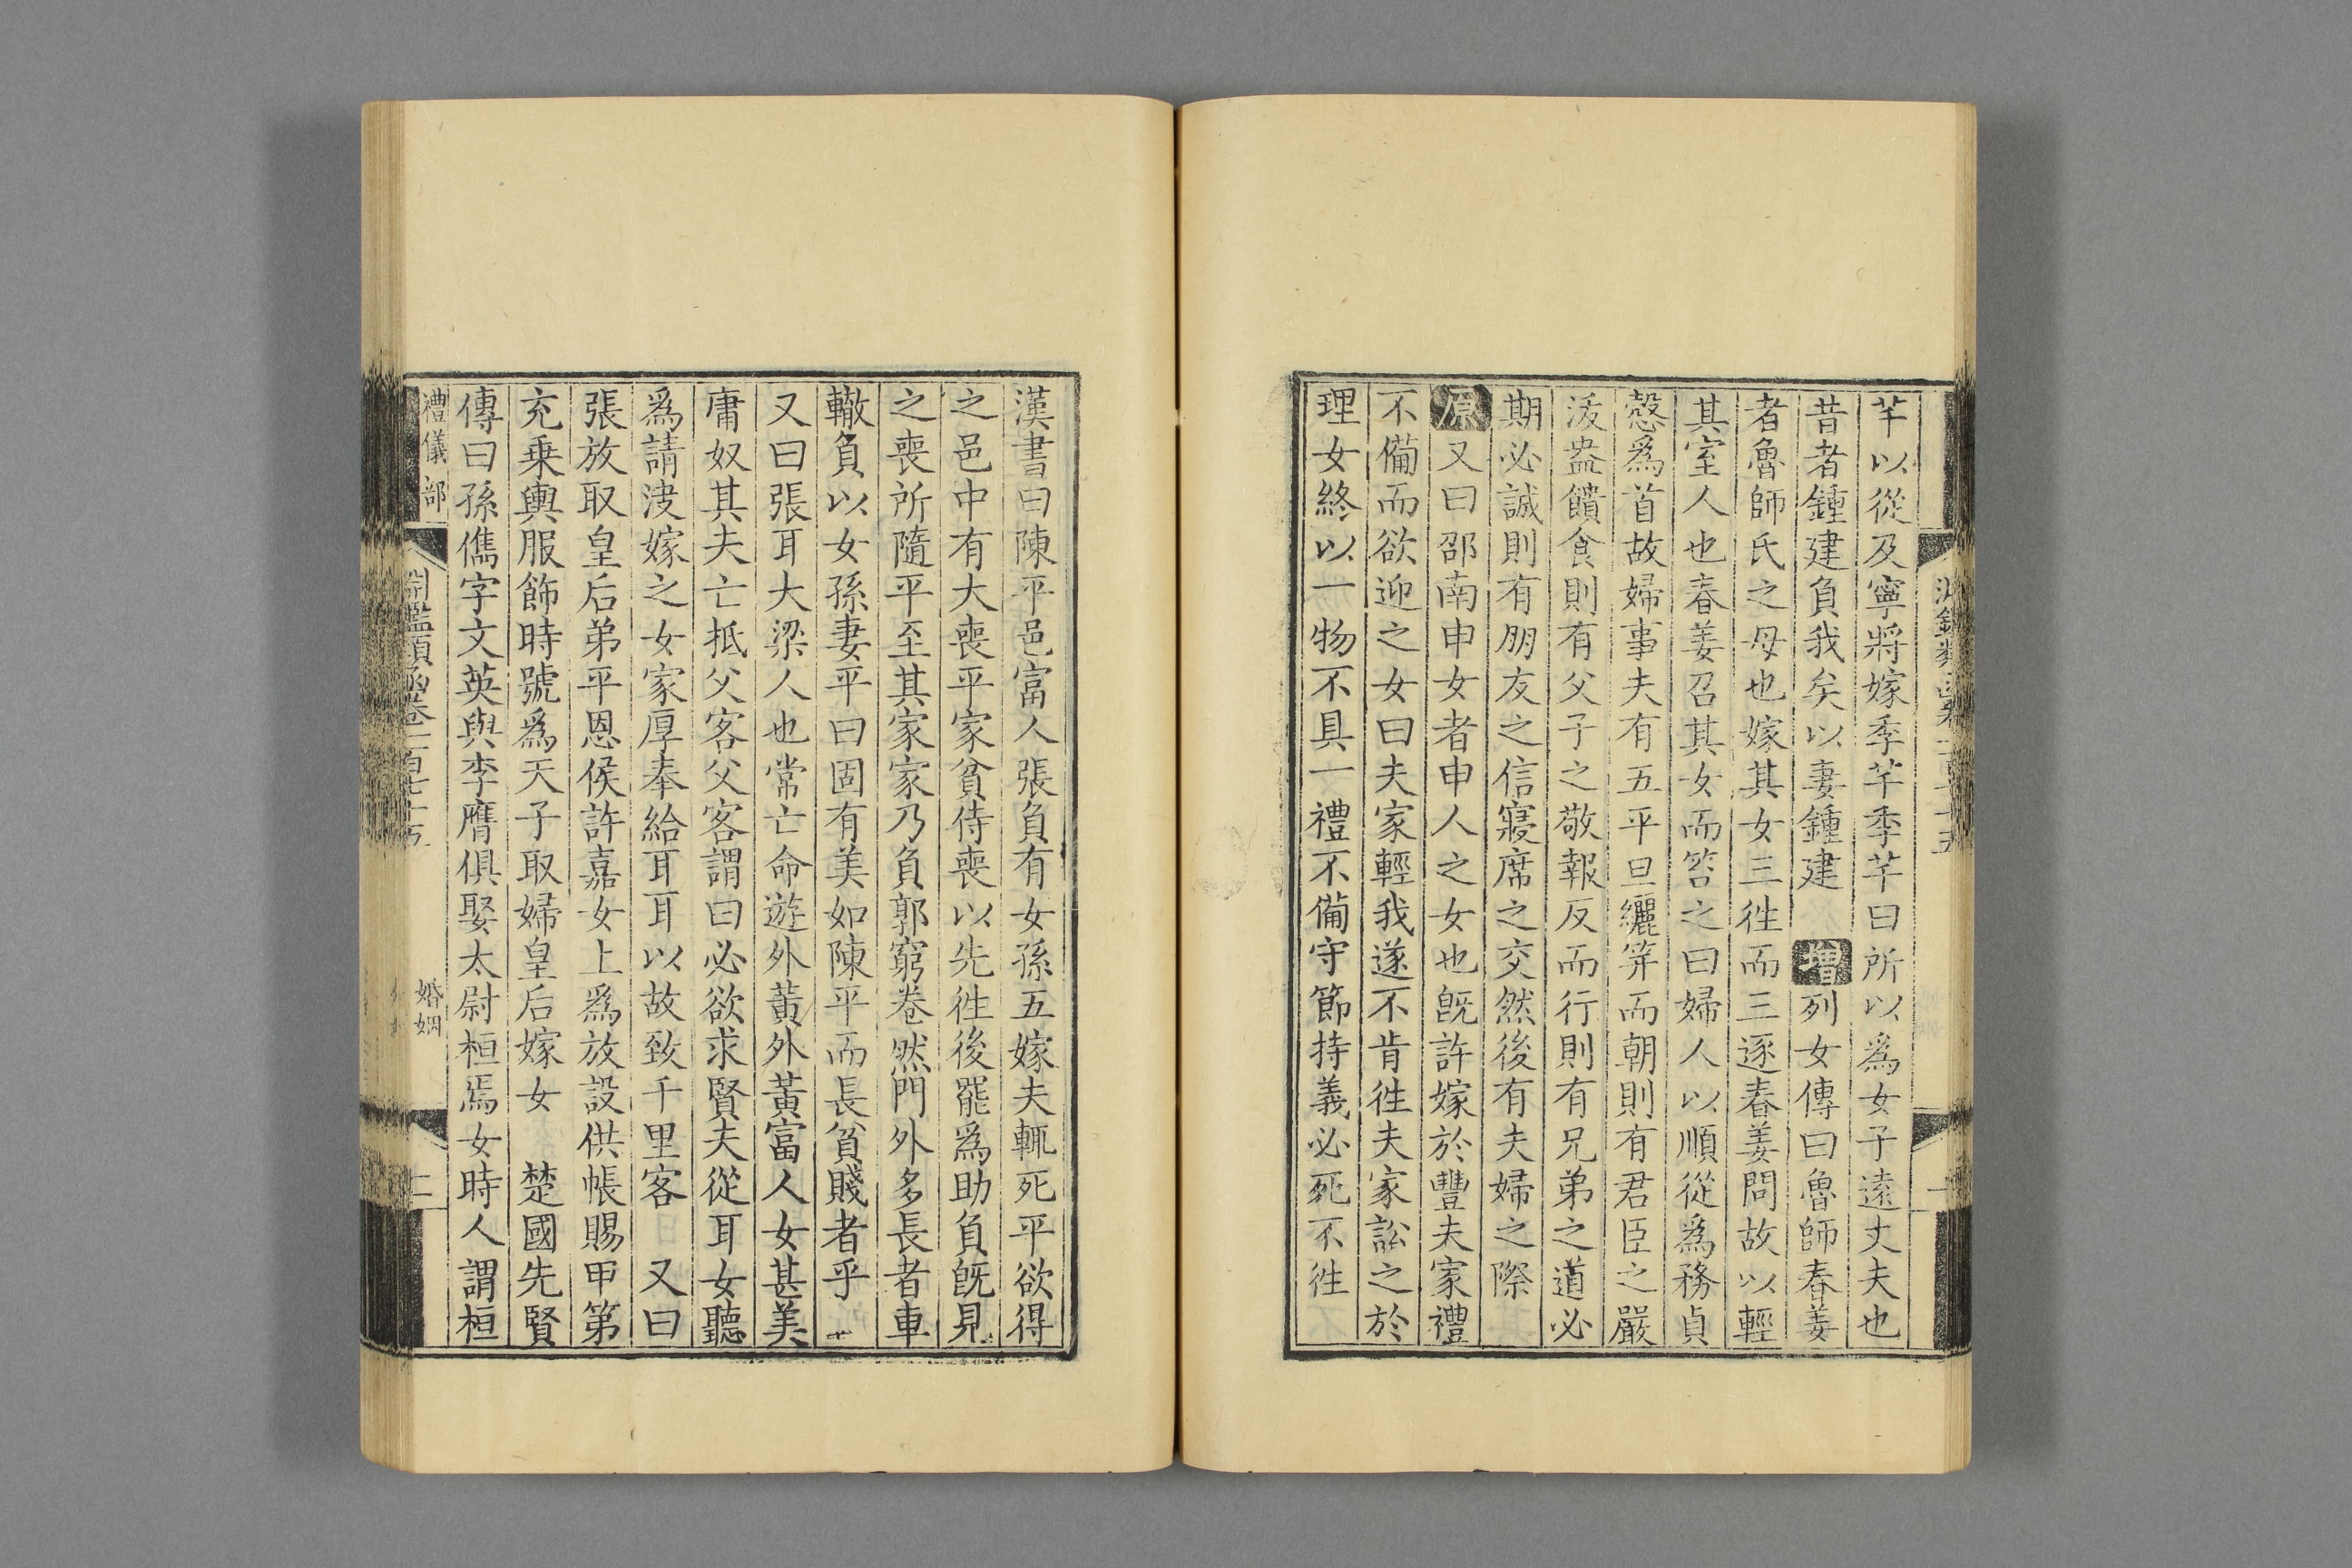 芊以從及寧將嫁季芊季芊曰所以爲女子遠丈夫也
昔者鍾建負我矣以妻鍾建 增列女傳曰魯師春姜
者魯師氏之母也嫁其女三徃而三逐春姜問故以輕
其室人也春姜召其女而笞之曰婦人以順從爲務貞
慤爲首故婦事夫有五平旦纚笄而朝則有君臣之嚴
沃盥饋食則有父子之敬報反而行則有兄弟之道必
期必誠則有朋友之信寢席之交然後有夫婦之際
原又曰邵南申女者申人之女也旣許嫁於豐夫家禮
不備而欲迎之女曰夫家輕我遂不肯徃夫家訟之於
理女終以一物不具一禮不備守節持義必死不徃
漢書曰陳平邑富人張負有女孫五嫁夫輒死平欲得
之邑中有大喪平家貧侍喪以先徃後罷爲助負旣見
之喪所隨平至其家家乃負郭窮巷然門外多長者車
轍負以女孫妻平曰固有美如陳平而長貧賤者乎
又曰張耳大梁人也常亡命遊外黃外黃富人女甚美
庸奴其夫亡抵父客父客謂曰必欲求賢夫從耳女聽
爲請決嫁之女家厚奉給耳耳以故致千里客 又曰
張放取皇后弟平恩侯許嘉女上爲放設供帳賜甲第
充乗輿服飾時號爲天子取婦皇后嫁女 楚國先賢
傳曰孫儁字文英與李膺俱娶太尉桓焉女時人謂桓
禮儀部
淵鑑類函卷一百七十五
婚姻
二